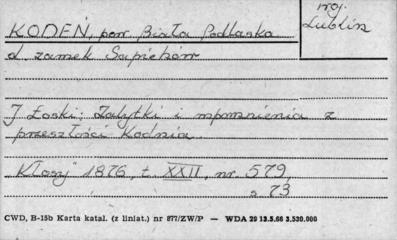 woj.
Lublin
KODEŃ, pow. Biała Podlaska
d. zamek Sapiehów
J Łoski; Zabytki i wspomnienia z
przeszłości Kodnia.
„Kłosy" 1876, t. XXII, nr. 579,
s 73
CWD, B-15b Karta katal. (z liniat.) nr 877/ZW/P — WDA 29 13.5.66 3.530.000